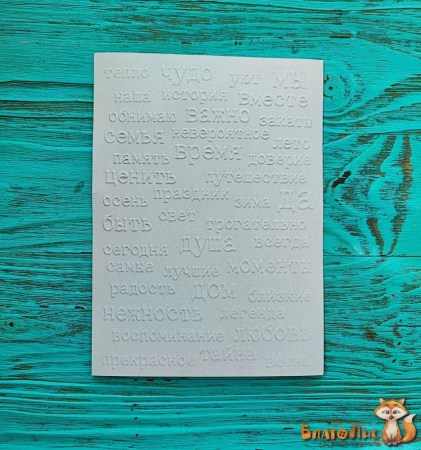 тепло чудо уют мы
наша история вместе
обнимаю важно закаты
семья невероятное лето
память время доверие
ценить путешествие
осень праздник зима да
быть свет трогательно
сегодня душа всегда
самые лучшие моменты
радость дом близкие
нежность легенда
воспоминание любовь
прекрасное тайна весна
БлагоЛис